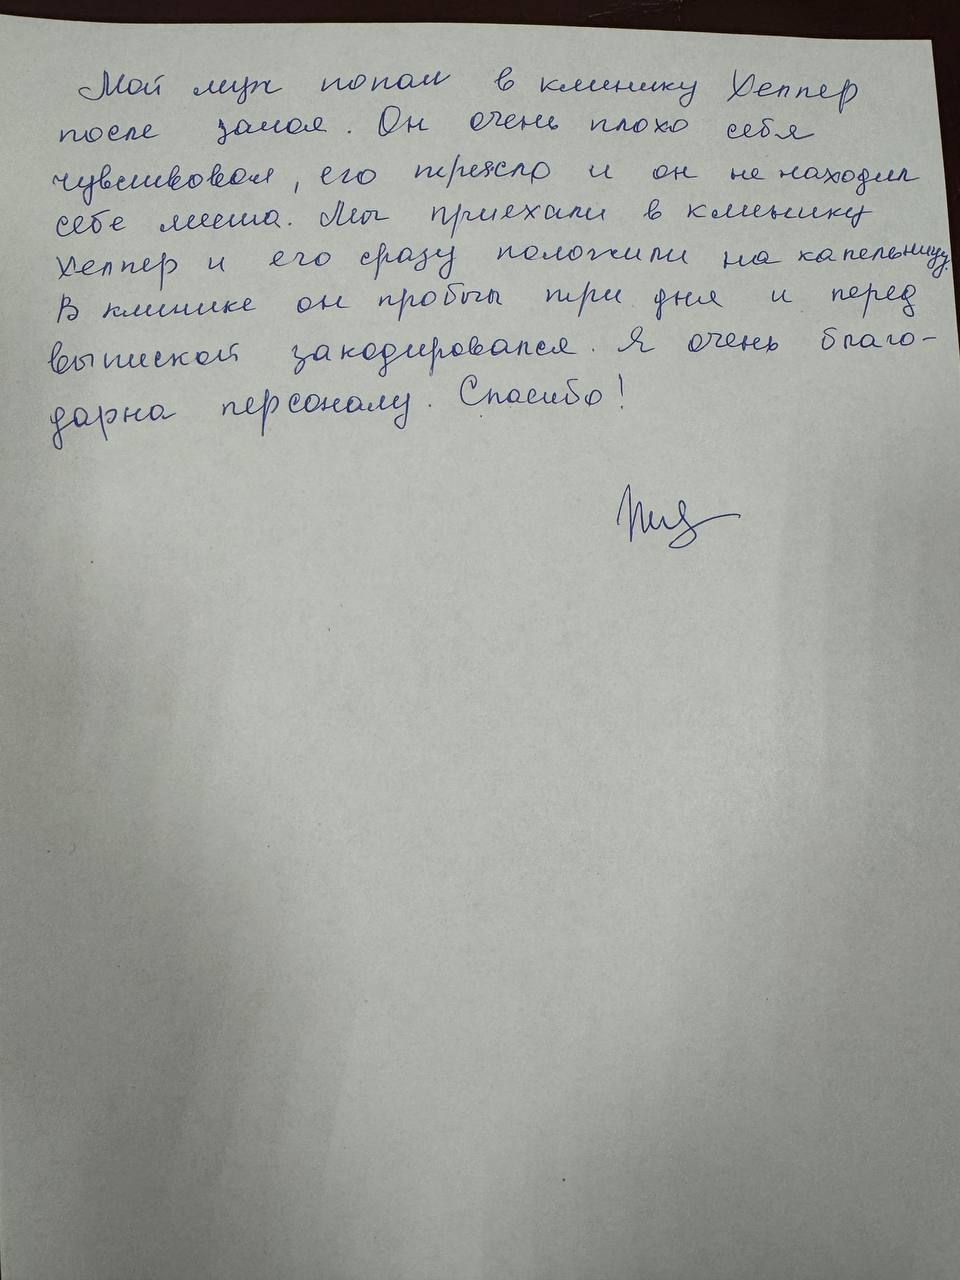 Мой муж попал в клинику Хелпер
после запоя. Он очень плохо себя
чувствовал, его трясло и он не находил
себе места. Мы приехали в клинику
Хелпер и его сразу положили на капельницу.
В клинике он пробыл три дня и перед
выпиской закодировался. Я очень благо-
дарна персоналу. Спасибо!